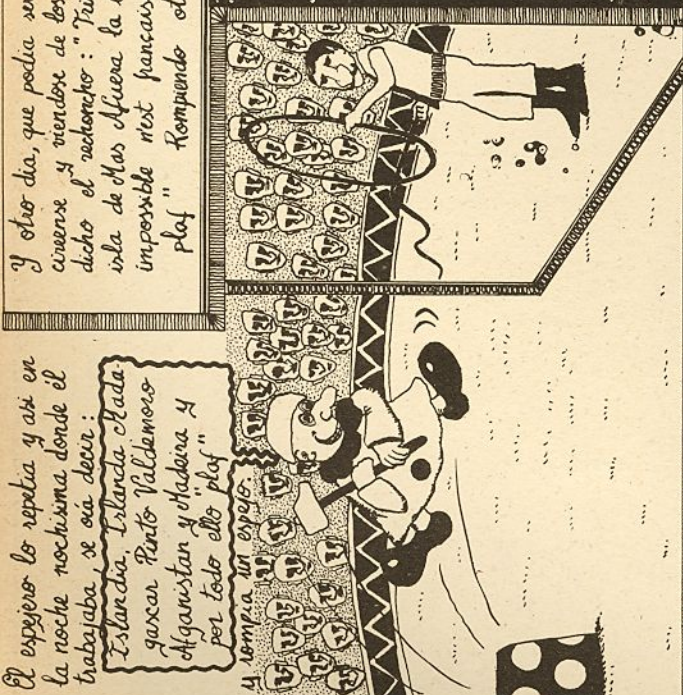 El espejero lo repetia y asi en
la noche nochisima donde él
trabajaba, se oía decir:
Islandia, Islanda Mada-
gascar Pinto Valdemoro
Afganistan y Madeira y
por todo ello "plaf"
y rompia un espejo.
Y otro dia, que podia se
circense y viendose de los
dicho el rechoncho: "Tri
isla de Mas Afuera la
impossible n'est français
plaf" Rompiendo ot